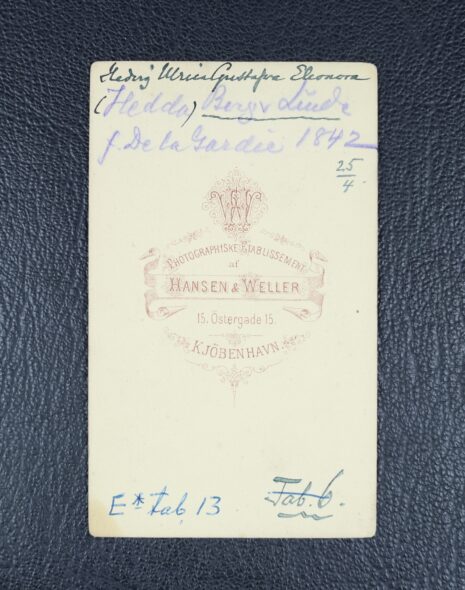 Hedvig Ulrica Gustafva Eleonora
(Hedda) Berg v Linde
f. De la Gardie 1842
25
4
HW
PHOTOGRAPHISKE ETABLISSEMENT
af
HANSEN & WELLER
15. Östergade 15.
KJÖBENHAVN.
E* tab, 13
Tab. 6.